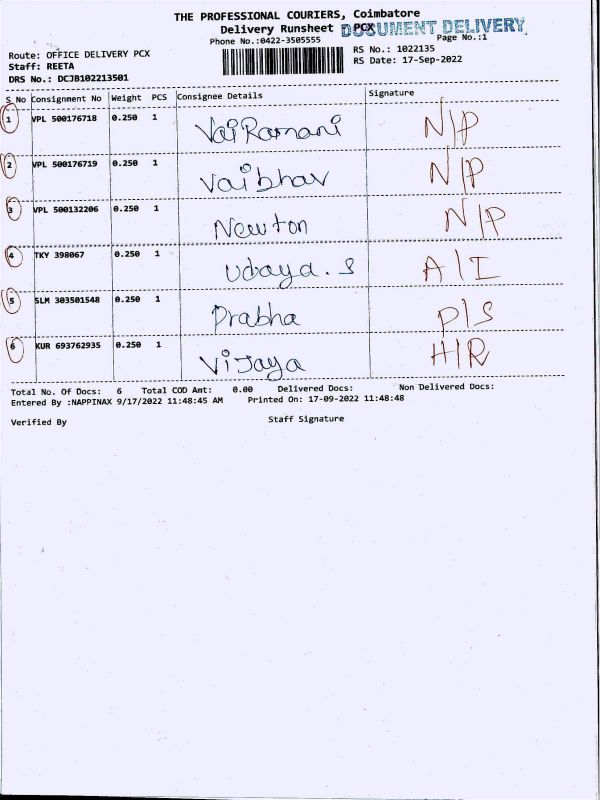 THE PROFESSIONAL COURIERS, Coimbatore
Delivery Runsheet PCX DOCUMENT DELIVERY
Phone No.:0422-3505555 Page No.:1
Route: OFFICE DELIVERY PCX RS No.: 1022135
Staff: REETA RS Date: 17-Sep-2022
DRS No.: DCJB102213501
S No Consignment No Weight PCS Consignee Details Signature
1 VPL 500176718 0.250 1 VaiRamani N/P
2 VPL 500176719 0.250 1 Vaibhav N/P
3 VPL 500132206 0.250 1 Newton N/P
4 TKY 398067 0.250 1 Udaya.S A/I
5 SLM 303501548 0.250 1 Prabha P/S
6 KUR 693762935 0.250 1 Vijaya H/R
Total No. Of Docs: 6 Total COD Amt: 0.00 Delivered Docs: Non Delivered Docs:
Entered By :NAPPINAX 9/17/2022 11:48:45 AM Printed On: 17-09-2022 11:48:48
Verified By Staff Signature